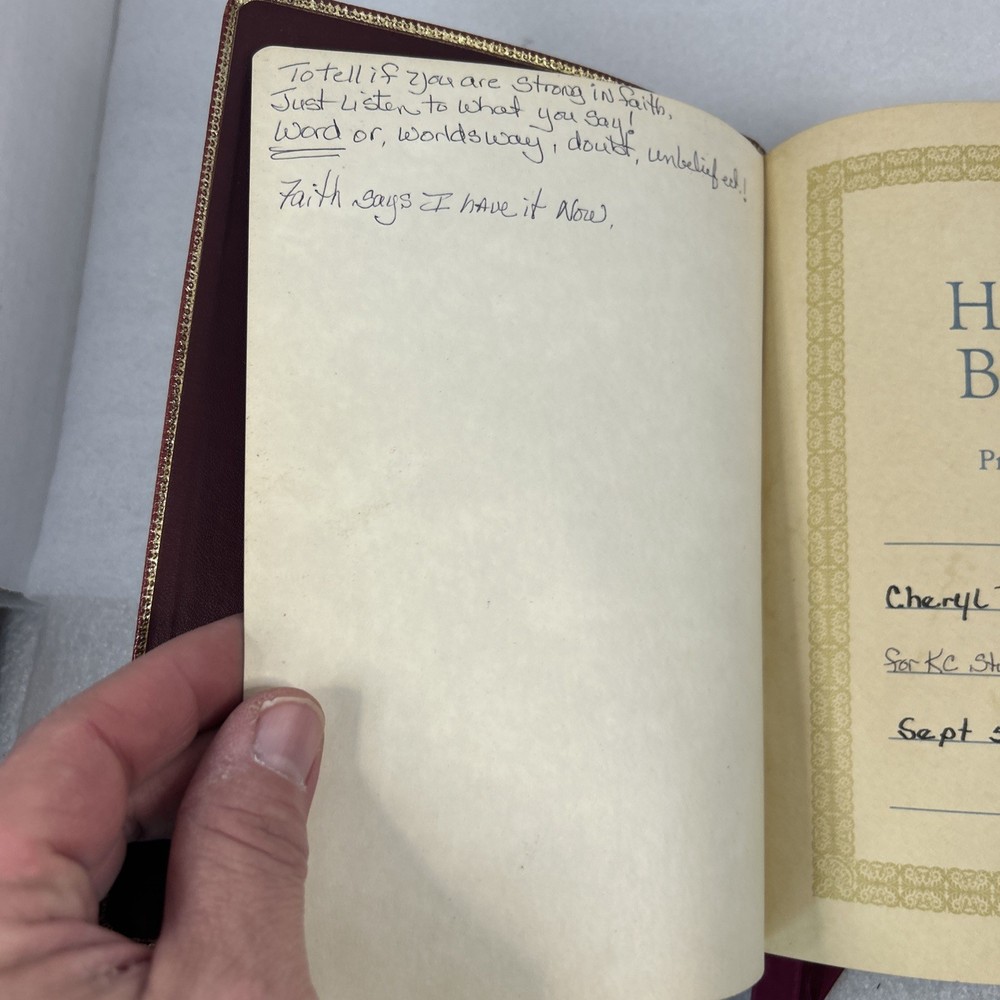 To tell if you are strong in faith,
Just Listen to what you say!
Word or, worldsway, doubt, unbelief ed!
Faith says I have it Now.
H
B
Pr
Cheryl
for KC Sto
Sept 5